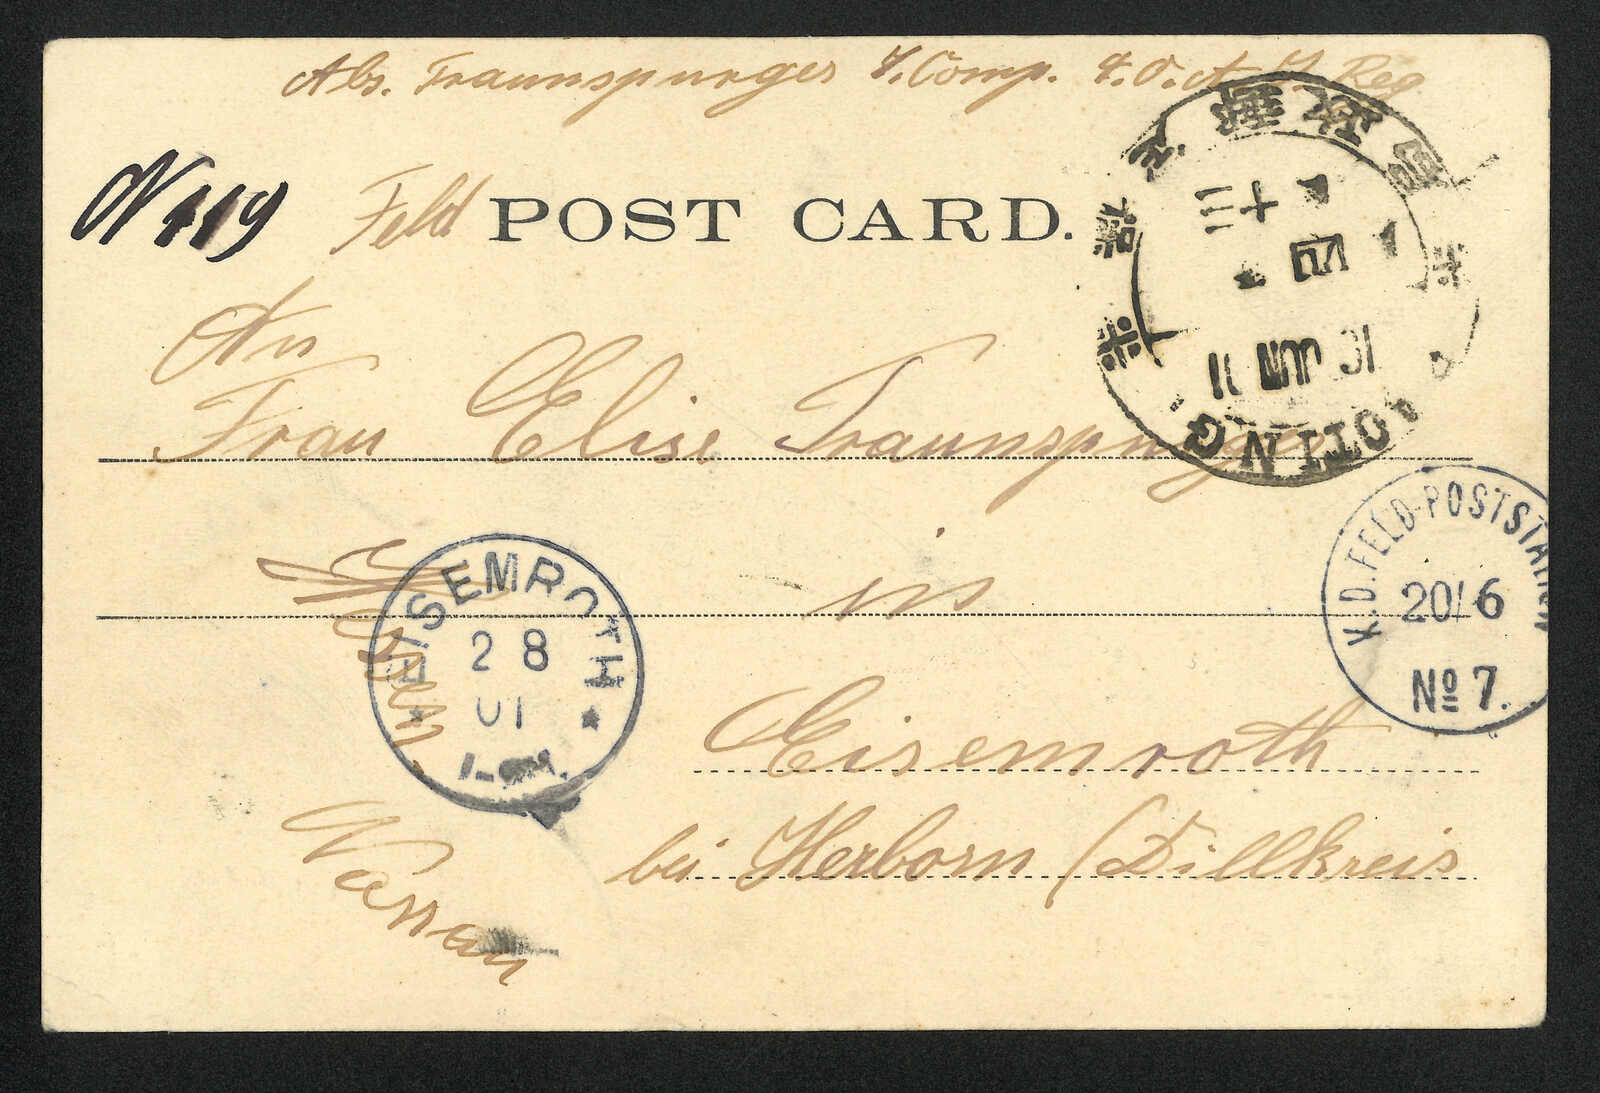 Abs. Traunspurger 7. Comp. 4. O. A. I. Reg
N 119
Feld POST CARD.
四
JUN 01
TING
An
Frau Elise Traunspurger
in
Eisemroth
bei Herborn (Dillkreis
Hessen
Nassau
EISEMROTH
2 8
01
K.D. FELD-POSTSTATION
20/6
No 7.